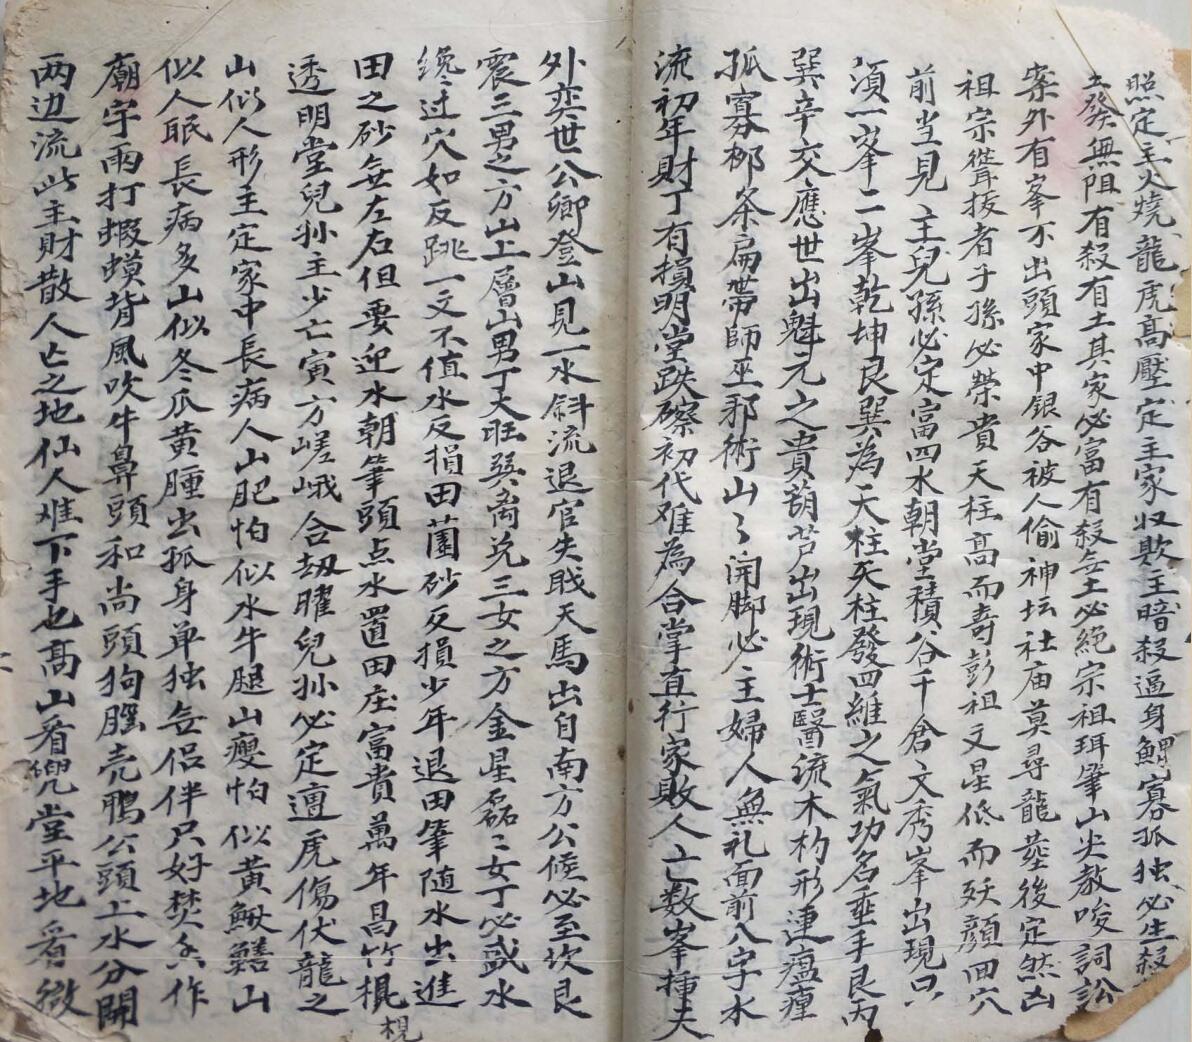 照定主火燒龍虎高壓定主家收欺主暗殺逼身鰥寡孤独必生殺
土發無阻有殺有土其家必富有殺無土必絕宗祖珥筆山尖教唆詞訟
案外有峯不出頭家中銀谷被人偷神坛社庙莫尋龍塋後定然凶
祖宗聳拔者子孫必荣貴天柱高而壽彭祖文星低而殀顔回穴
前当見主兒孫必定富四水朝堂積谷千倉文秀峯出現只
須一峯二峯乾坤艮巽為天柱天柱發四維之氣功名垂手艮丙
巽辛交應世出魁元之貴葫芦出現術士醫流木杓形連瘟㾮
孤寡梆条扁帶師巫邪術山〻開脚必主婦人無礼面前八字水
流初年財丁有損明堂跌礤初代难為合掌直行家敗人亡数峯揷天
外奕世公卿登山見一水斜流退官失戝天馬出自南方公候必至坎艮
震三男之方山上層山男丁大旺巽离兑三女之方金星磊〻女丁必盛水
纔过穴如反跳一文不值水反損田薗砂反損少年退田筆随水出進
田之砂無左右但要迎水朝筆頭点水置田庄富貴萬年昌竹梘
梘
透明堂兒孙主少亡寅方嵯峨合刼曜兒孙必定遭虎傷伏龍之
山似人形主定家中長病人山肥怕似水牛腿山瘦怕似黄鰍鱔山
似人眠長病多山似冬瓜黄腫出孤身单独無侣伴只好焚香作
廟宇雨打蝦蟆背風吹牛鼻頭和尚頭狗腦壳鴨公頭上水分開
两边流此主財散人亡之地仙人难下手也高山看兜堂平地看微